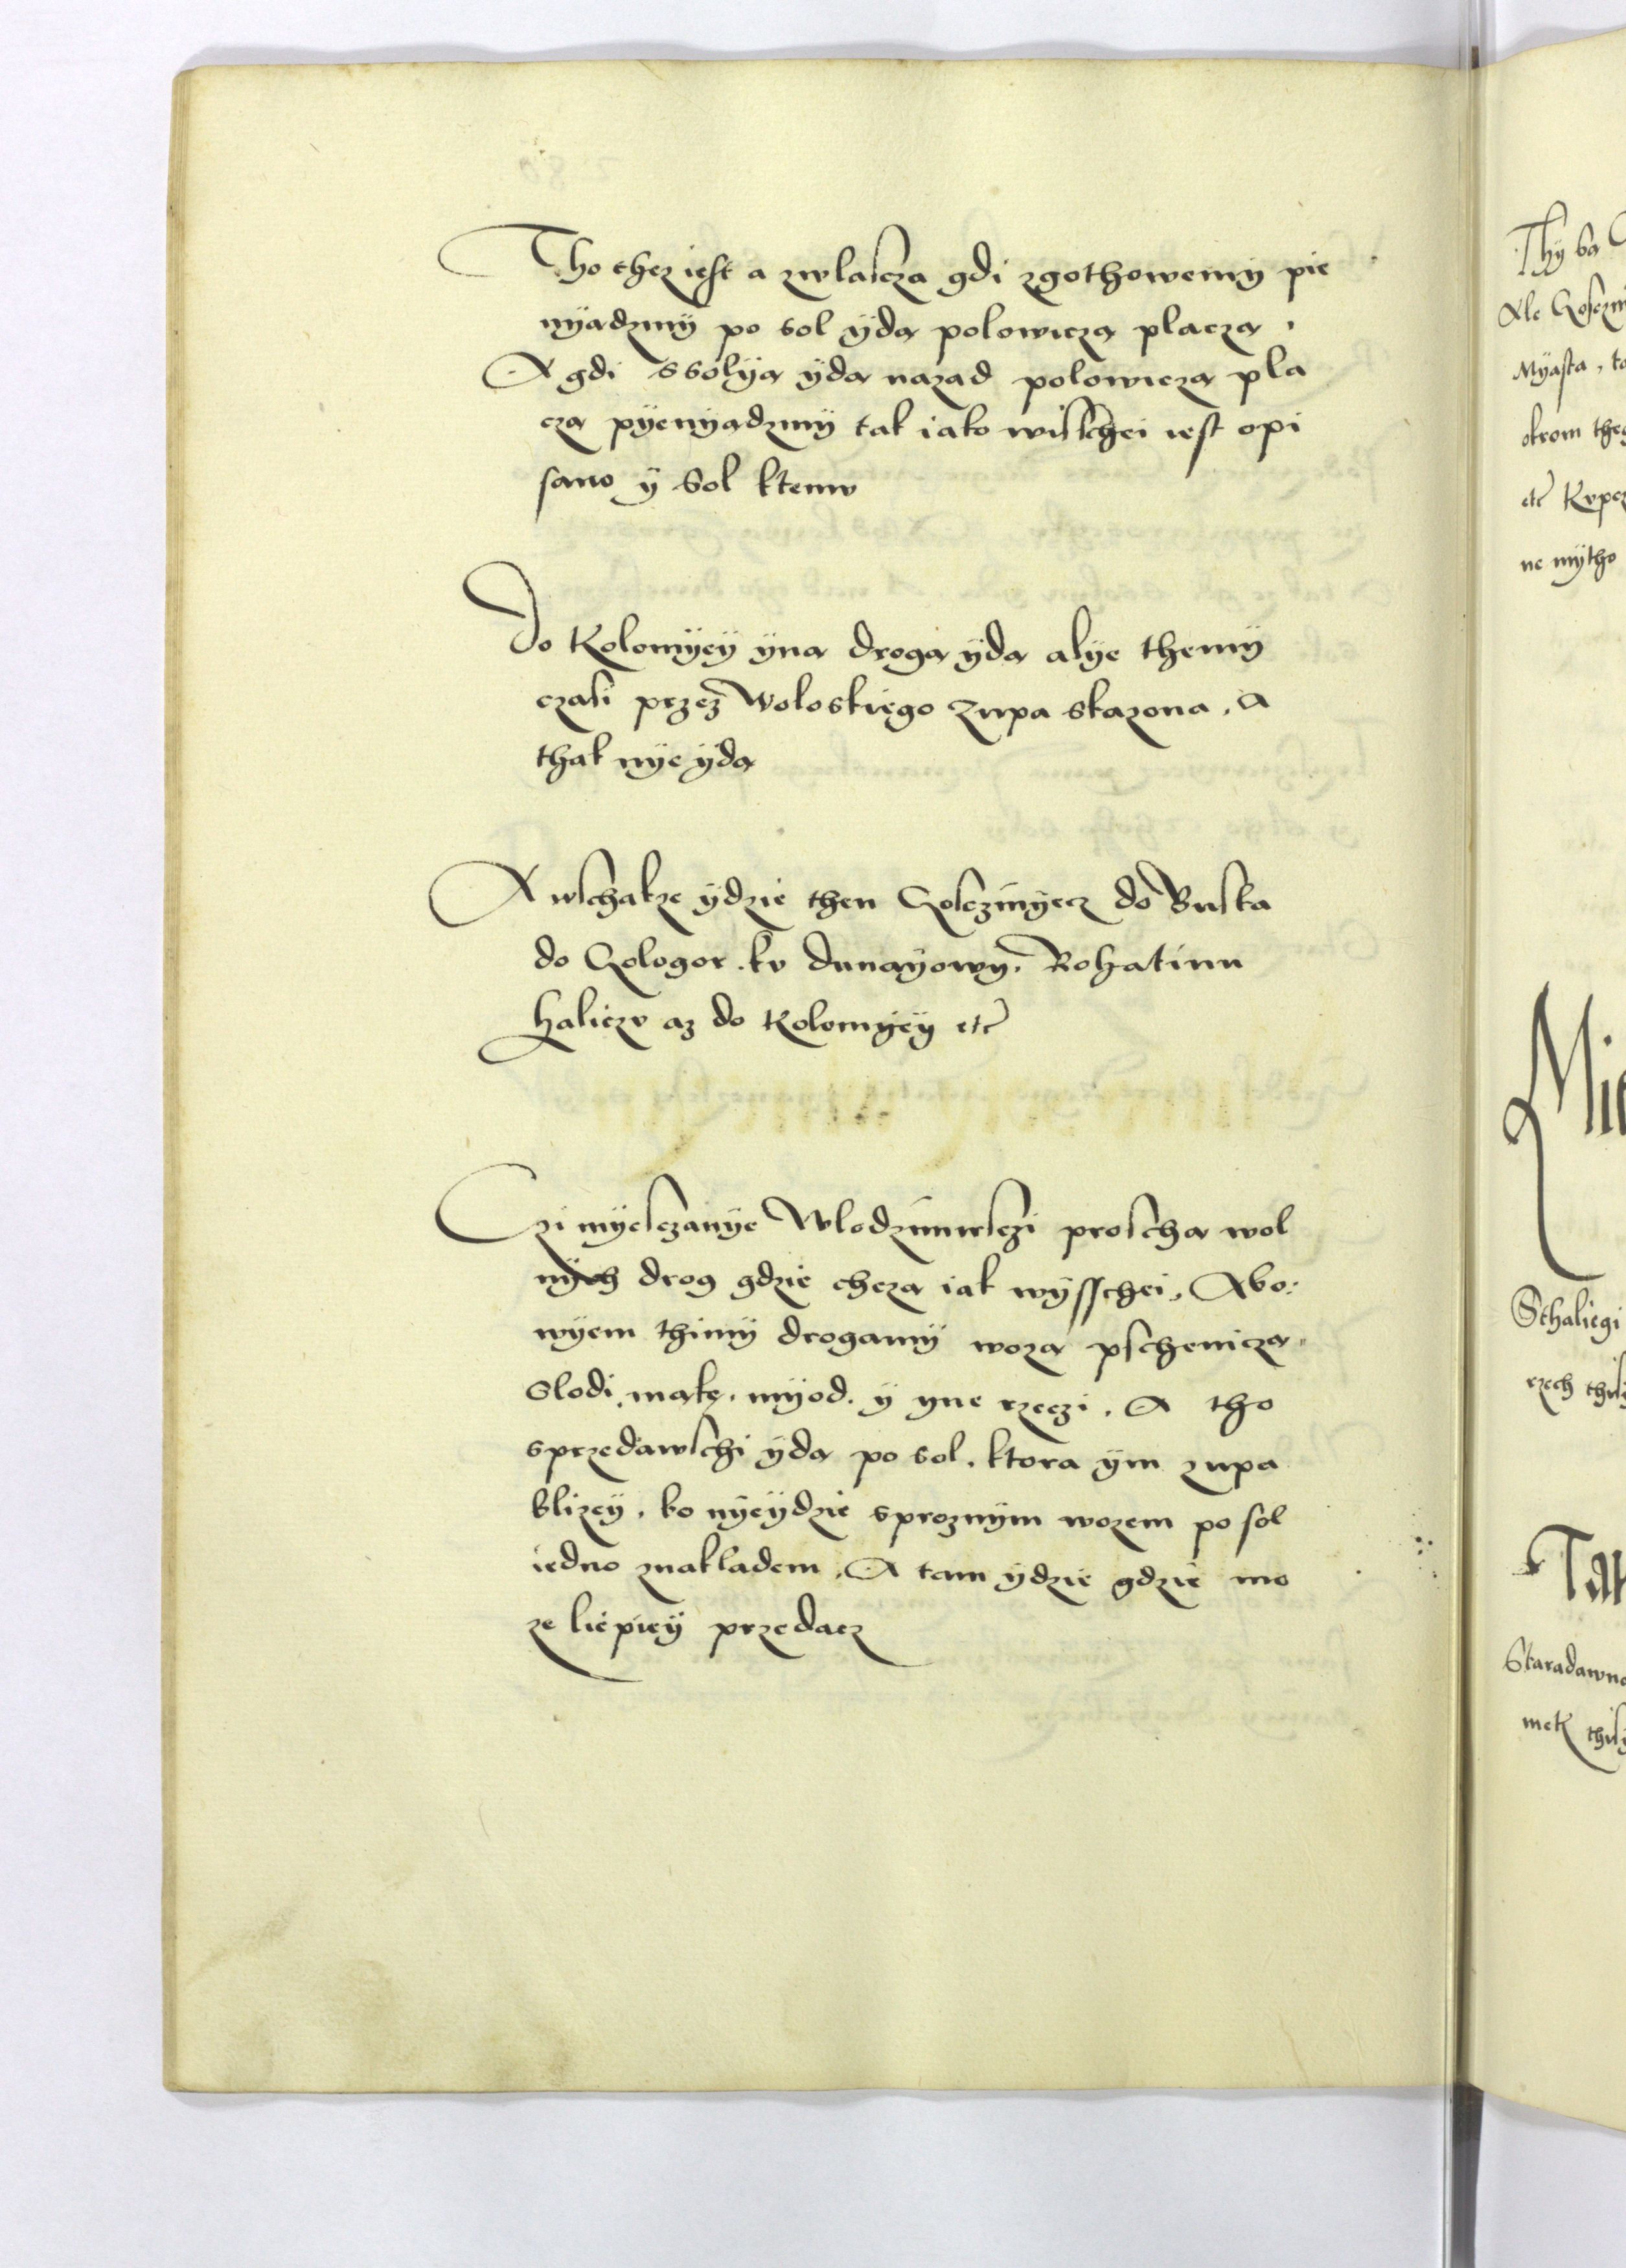 Tho thez iest a zwlascza gdi zgothowemy pie
nyądzmÿ po sol ÿdą polowiczą placzą,
A gdi ssolyą ÿdą nazad polowiczą pla
czą pÿenyądzmÿ tak iako wischei iest opi
sano ÿ Sol ktemv
Do Kolomÿeÿ ÿna drogą ÿdą alÿe themÿ
czasi przez Woloskiego Zupa skazona, A
thak nÿe ÿdą
A wschakze ÿdzie then Gosczinÿecz do Buska
do Gologor. kv dunaÿowÿ, Rohatinu
haliczv az do Kolomÿeÿ etc
Czi mÿesczanÿe Wlodzimirsczi proschą wol
nÿch drog gdzie chczą iak wÿsschei, Abo:
wÿem thimÿ drogamÿ wozą pscheniczą,
Slodi, mąkę, mÿod. ÿ ÿne rzeczi. A tho
sprzedawschi ÿdą po sol, ktora ÿm zupa
blizeÿ, bo nÿeÿdzie sproznÿm wozem po sol
iedno znakladem, A tam ÿdzie gdzie mo
ze liepieÿ przedacz
Thÿ są
Ale Gosczin
Mÿasta, ta
okrom theg
etc Kvpcz
ne mÿtho
Mie
Sthaliegi
rzech this
Tar
Staradawna